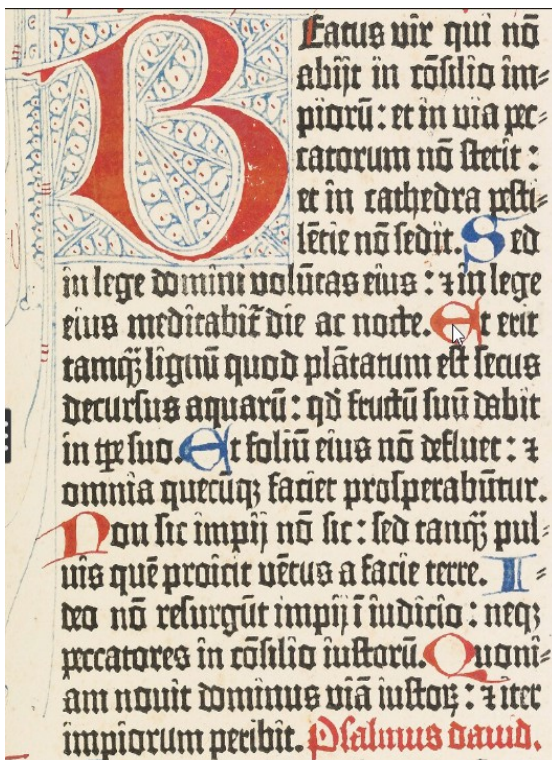 Beatus vir qui nō
abijt in cōsilio im⸗
piorū : et in via pec⸗
catorum nō stetit :
et in cathedra pesti⸗
lētie nō sedit. Sed
in lege domini volūtas eius : ⁊ in lege
eius meditabit᷑ die ac nocte. Et erit
tamqꝫ lignū quod plātatum est secus
decursus aquarū : qd̄ fructū suū dabit
in tp̄e suo. Et foliū eius nō defluet : ⁊
omnia quecūqꝫ faciet prosperabūtur.
Non sic impij nō sic : sed tanqꝫ pul⸗
uis quē proicit vētus a facie terre. I⸗
deo nō resurgūt impij ī iudicio : neqꝫ
peccatores in cōsilio iustorū. Quoni⸗
am nouit dominus viā iustoꝝ : ⁊ iter
impiorum peribit. Psalmus dauid.